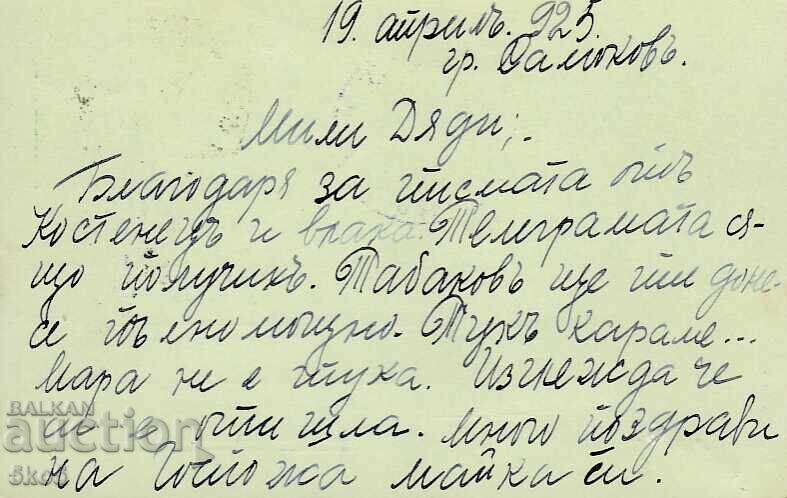 19. априлъ. 925.
гр. Самоковъ.
Мили Дяди;.
Благодаря за писмата отъ
Костенецъ и влака. Телеграмата сѫ-
що получихъ. Табаковъ ще ти доне-
се пълномощно. Тукъ караме...
Мара не е тука. Изглежда че
е отишла. Много поздрави
на Госпожа майка ти.
BALKAN
auction
5ko5